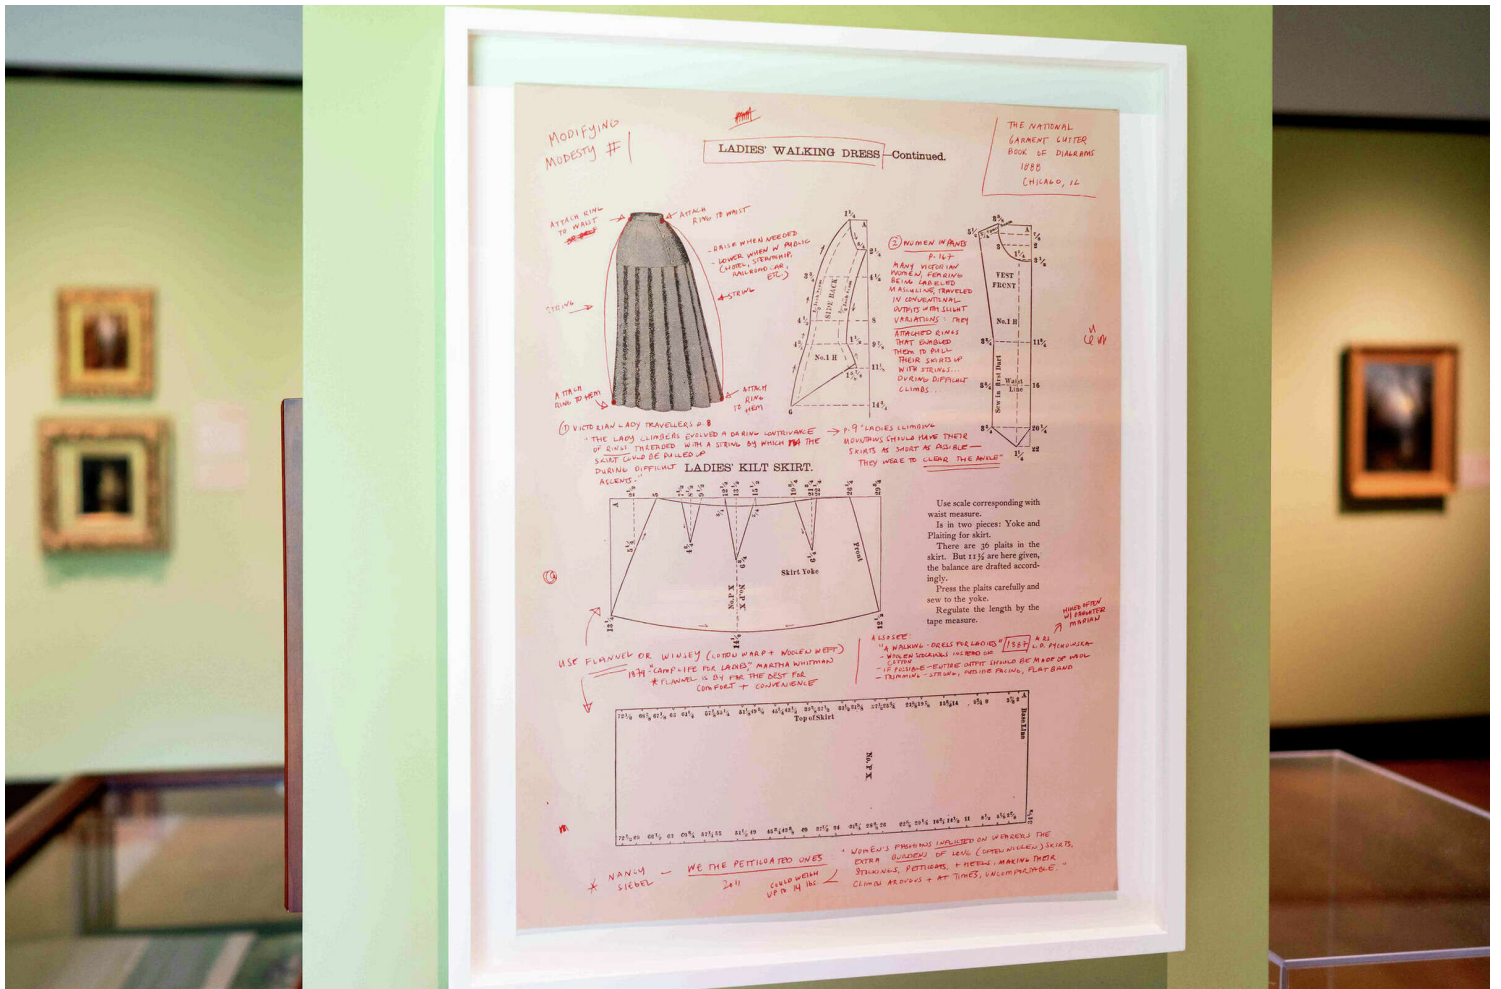 MODIFYING
MODESTY #1
LADIES' WALKING DRESS—Continued.
THE NATIONAL
GARMENT CUTTER
BOOK OF DIAGRAMS
1888
CHICAGO, IL
ATTACH RING
TO WAIST
ATTACH
RING TO WAIST
- RAISE WHEN NEEDED
- LOWER WHEN IN PUBLIC
(HOTEL, STEAMSHIP,
RAILROAD CAR,
ETC.)
STRING
STRING
ATTACH
RING TO HEM
ATTACH
RING
TO HEM
SIDE BACK
No.1 H
② WOMEN IN PANTS
P. 167
MANY VICTORIAN
WOMEN, FEARING
BEING LABELED
MASCULINE, TRAVELED
IN CONVENTIONAL
OUTFITS WITH SLIGHT
VARIATIONS: THEY
ATTACHED RINGS
THAT ENABLED
THEM TO PULL
THEIR SKIRTS UP
WITH STRINGS...
DURING DIFFICULT
CLIMBS.
VEST
FRONT
No.1 H
Sew in first Dart
Waist
Line
① VICTORIAN LADY TRAVELLERS P. 8
"THE LADY CLIMBERS EVOLVED A DARING CONTRIVANCE
OF RINGS THREADED WITH A STRING BY WHICH THE
SKIRT COULD BE PULLED UP
DURING DIFFICULT
ASCENTS."
P. 9 "LADIES CLIMBING
MOUNTAINS SHOULD HAVE THEIR
SKIRTS AS SHORT AS POSSIBLE—
THEY WERE TO CLEAR THE ANKLE"
LADIES' KILT SKIRT.
Skirt Yoke
Front
No.P X
No.P X
Use scale corresponding with
waist measure.
Is in two pieces: Yoke and
Plaiting for skirt.
There are 36 plaits in the
skirt. But 11½ are here given,
the balance are drafted accord-
ingly.
Press the plaits carefully and
sew to the yoke.
Regulate the length by the
tape measure.
HIKED OFTEN
W/ DAUGHTER
MARIAN
USE FLANNEL OR WINSEY (COTTON WARP + WOOLEN WEFT)
1879 - "CAMP LIFE FOR LADIES," MARTHA WHITMAN
* FLANNEL IS BY FAR THE BEST FOR
COMFORT + CONVENIENCE
ALSO SEE:
"A WALKING-DRESS FOR LADIES" 1887 MRS
L.D. PYCHOWSKA
- WOOLEN STOCKINGS INSTEAD OF
COTTON
- IF POSSIBLE - ENTIRE OUTFIT SHOULD BE MADE OF WOOL
- TRIMMING - STRONG, OUTSIDE FACING, FLAT BAND
Top of Skirt
Base Line
No. P X
* NANCY
SIEBEL
WE THE PETTICOATED ONES
2011
COULD WEIGH
UP TO 14 lbs.
"WOMEN'S FASHIONS INFLICTED ON WEARERS THE
EXTRA BURDENS OF LONG (OFTEN WOOLEN) SKIRTS,
STOCKINGS, PETTICOATS + HEELS, MAKING THEIR
CLIMB ARDUOUS + AT TIMES, UNCOMFORTABLE."